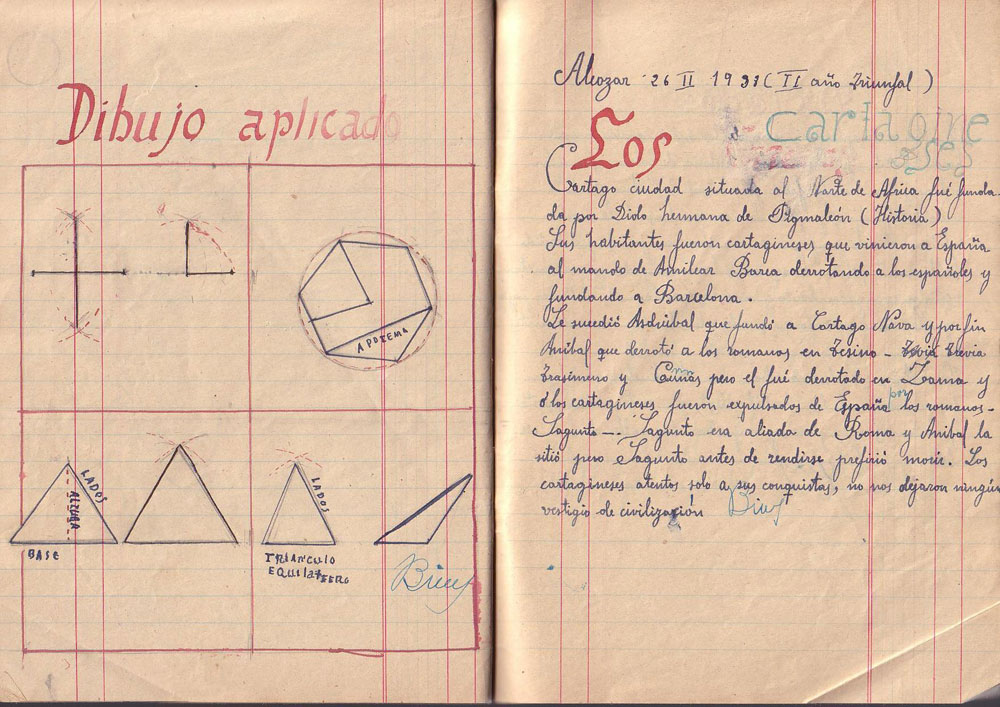 Dibujo aplicado
APOTEMA
LADOS
ALTURA
BASE
LADOS
TRIANGULO
EQUILATERO
Bien
Alcozar 26 II 1938 (II año triunfal)
Los Cartagine
ses
Cartago ciudad situada al Norte de Africa fué funda
da por Dido hermana de Pigmaleón (Historia)
Sus habitantes fueron cartagineses que vinieron a España
al mando de Amilcar Barca derrotando a los españoles y
fundando a Barcelona.
Le sucedió Asdrúbal que fundó a Cartago Nava y por fin
Anibal que derrotó a los romanos en Tesino - Trevia
trasimeno y Cunnas pero el fué derrotado en Zama y
los cartagineses fueron expulsados de España por los romanos-
Sagunto-. Sagunto era aliada de Roma y Anibal la
sitió pero Sagunto antes de rendirse prefirió morir. Los
cartagineses atentos solo a sus conquistas, no nos dejaron ningún
vestigio de civilización Bien